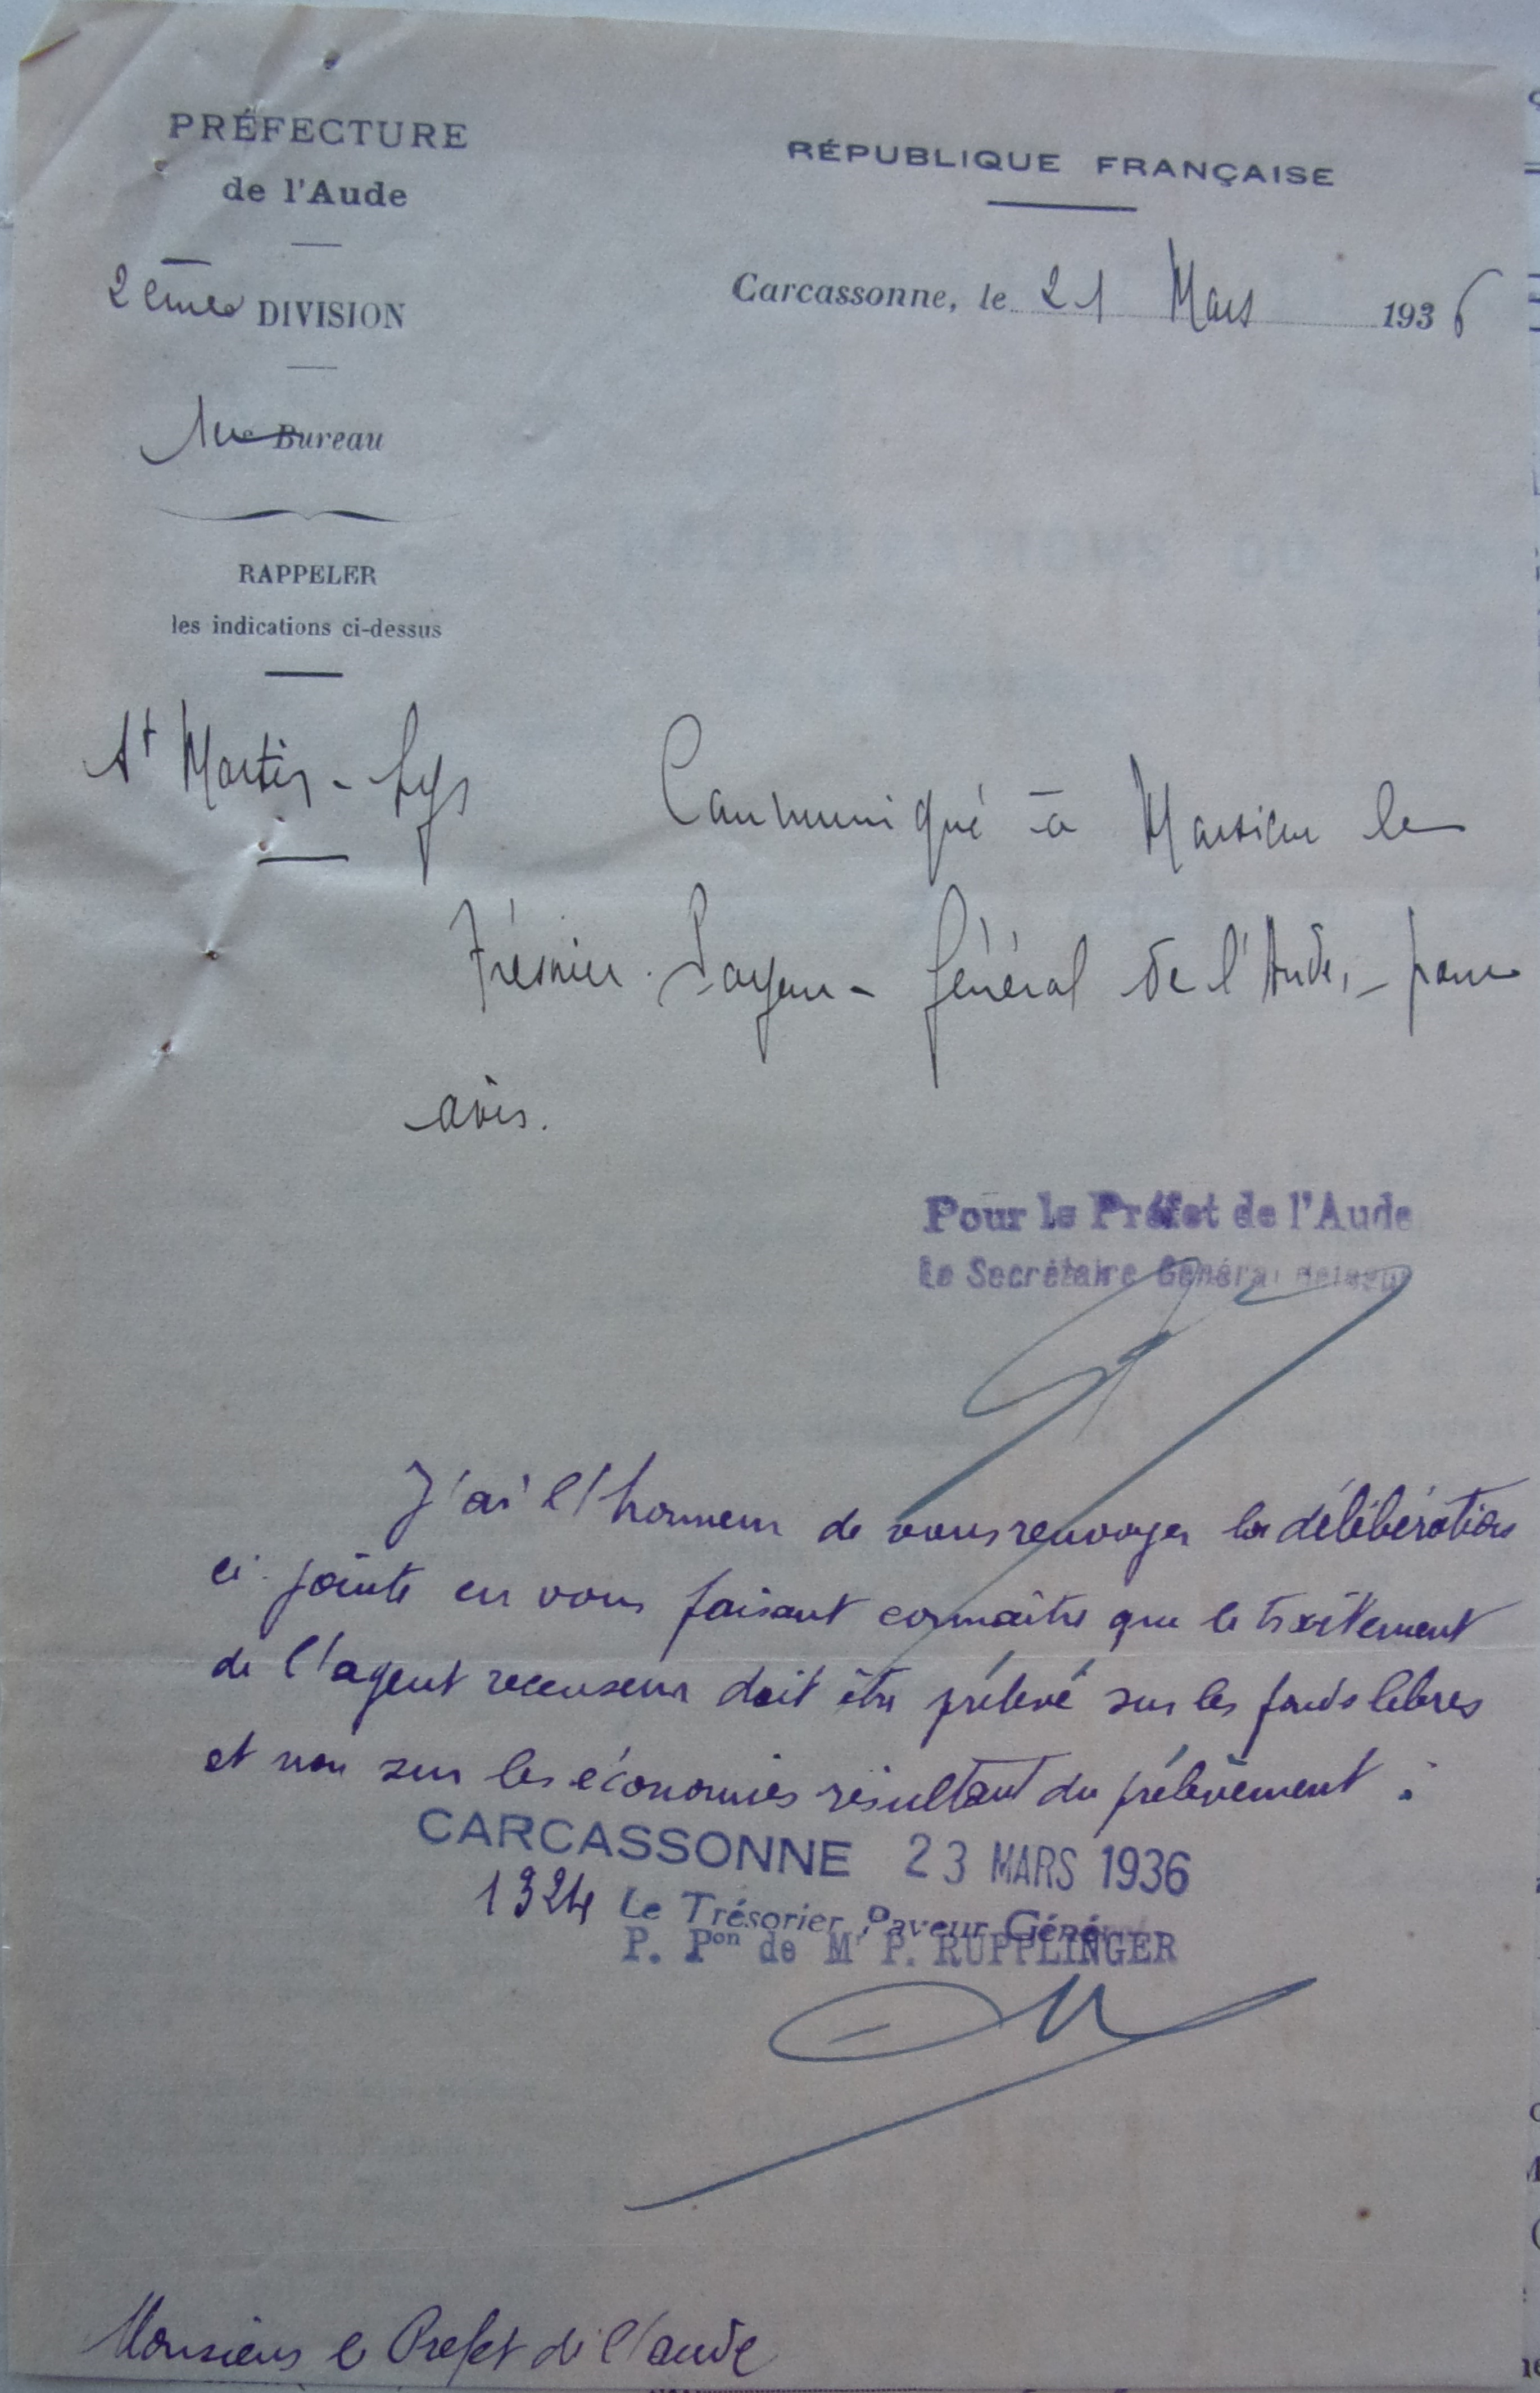 PRÉFECTURE
de l'Aude
RÉPUBLIQUE FRANÇAISE
2ème DIVISION
Carcassonne, le 21 Mars 1936
1er Bureau
RAPPELER
les indications ci-dessus
St Martin-Lys
Communiqué à Monsieur le
Trésorier-Payeur-Général de l'Aude, - pour
avis.
Pour le Préfet de l'Aude
Le Secrétaire Général délégué
J'ai l'honneur de vous renvoyer la délibération
ci-jointe en vous faisant connaître que le traitement
de l'agent recenseur doit être prélevé sur les fonds libres
et non sur les économies résultant du prélèvement.
CARCASSONNE 23 MARS 1936
1324 Le Trésorier Payeur Général
P. Pon de Mr P. RUPPLINGER
Monsieur le Préfet de l'Aude